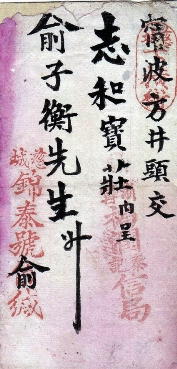 寧波方井頭交
志和寶莊內呈
俞子衡先生升
慈城錦泰號俞緘
信局